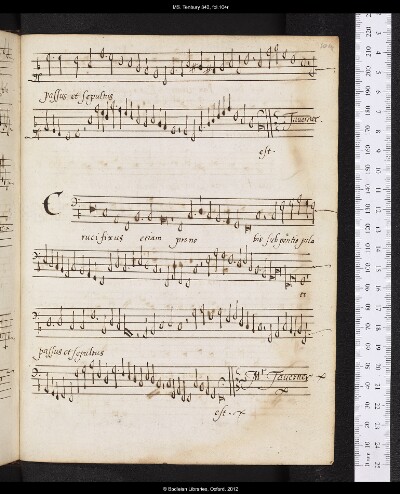 MS. Tenbury 340, fol.104r
passus et sepultus
Tauerner
est.
Crucifixus etiam pro no bis sub pontio pila
ti
passus et sepultus
Mr Tauerner
est.
© Bodleian Libraries, Oxford, 2012